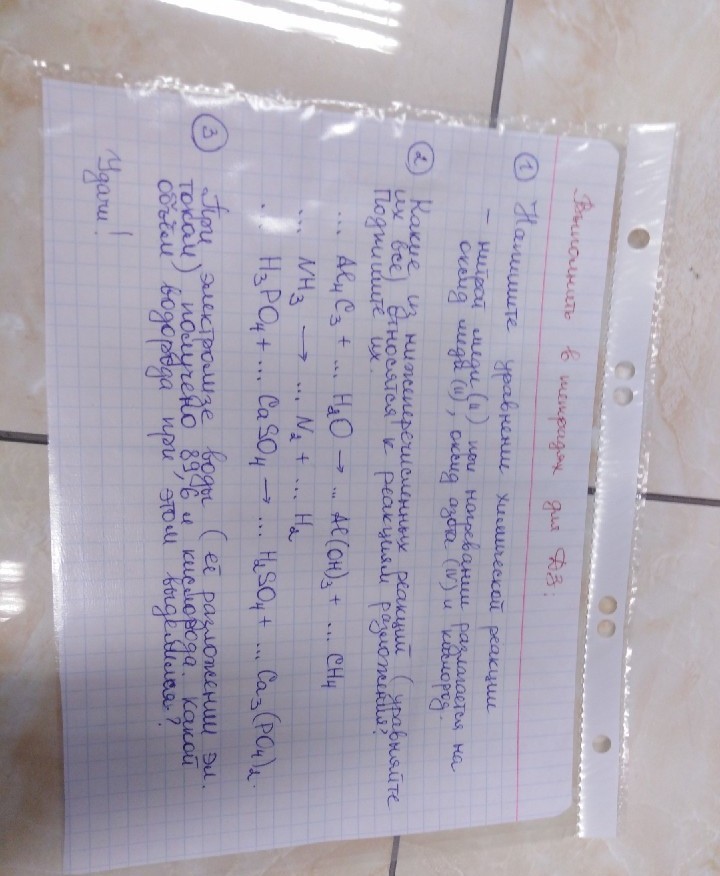 Выполнить в тетрадях для ДЗ:
① Напишите уравнение химической реакции
– нитрат меди (II) при нагревании разлагается на
оксид меди (II), оксид азота (IV) и кислород.
② Какие из нижеперечисленных реакций (уравняйте
их все) относятся к реакциям разложения?
Подпишите их.
... Al₄C₃ + ... H₂O → ... Al(OH)₃ + ... CH₄
... NH₃ → ... N₂ + ... H₂
... H₃PO₄ + ... CaSO₄ → ... H₂SO₄ + ... Ca₃(PO₄)₂.
③ При электролизе воды (её разложении эл.
током) получено 89,6 л кислорода. Какой
объём водорода при этом выделился?
Удачи!